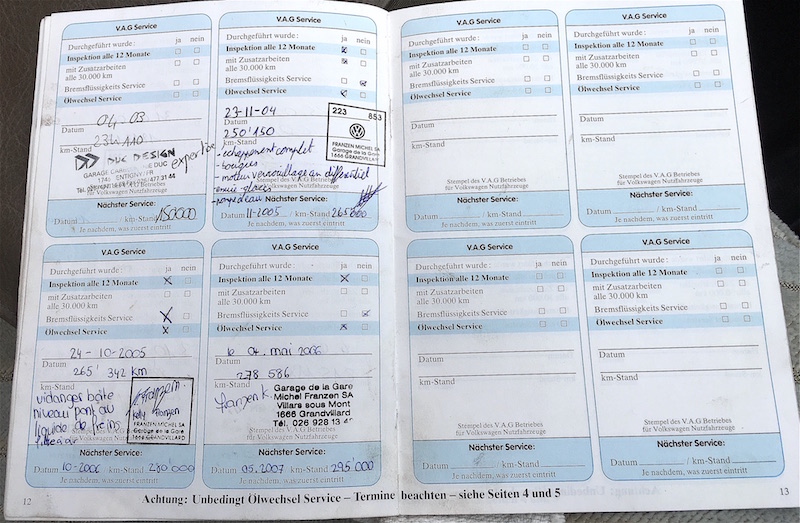 V.A.G Service
Durchgeführt wurde: ja nein
Inspektion alle 12 Monate
mit Zusatzarbeiten
alle 30.000 km
Bremsflüssigkeits Service
Ölwechsel Service
04 03
Datum
km-Stand
DUC DESIGN
expertise
Stempel des V.A.G Betriebs
für Volkswagen Nutzfahrzeuge
Nächster Service:
Datum / km-Stand
Je nachdem, was zuerst eintritt
V.A.G Service
Durchgeführt wurde: ja nein
Inspektion alle 12 Monate
mit Zusatzarbeiten
alle 30.000 km
Bremsflüssigkeits Service
Ölwechsel Service
23-11-04
Datum
250'150
km-Stand
223 853
FRANZEN MICHEL SA
Garage de la Gare
1666 GRANDVILLARD
- échappement complet
- bougies
- moteur verrouillage an différentiel
- essuie glaces
Stempel des V.A.G Betriebs
für Volkswagen Nutzfahrzeuge
Nächster Service:
Datum 11-2005 / km-Stand 265'000
Je nachdem, was zuerst eintritt
V.A.G Service
Durchgeführt wurde: ja nein
Inspektion alle 12 Monate
mit Zusatzarbeiten
alle 30.000 km
Bremsflüssigkeits Service
Ölwechsel Service
24-10-2005
Datum
265'342 km
km-Stand
vidanger boîte
niveau pont au
liquide de freins
FRANZEN MICHEL SA
Garage de la Gare
1666 GRANDVILLARD
Nächster Service:
Datum 10-2006 km-Stand 280'000
Je nachdem, was zuerst eintritt
V.A.G Service
Durchgeführt wurde: ja nein
Inspektion alle 12 Monate
mit Zusatzarbeiten
alle 30.000 km
Bremsflüssigkeits Service
Ölwechsel Service
le 04. mai 2006
Datum
278 586
km-Stand
Garage de la Gare
Michel Franzen SA
Villars sous Mont
1666 Grandvillard
Tél. 026 928 13
Stempel des V.A.G Betriebs
für Volkswagen Nutzfahrzeuge
Nächster Service:
Datum 05.2007 km-Stand 295'000
Je nachdem, was zuerst eintritt
12
Achtung: Unbedingt Ölwechsel Service – Termine beachten – siehe Seiten 4 und 5
V.A.G Service
Durchgeführt wurde: ja nein
Inspektion alle 12 Monate
mit Zusatzarbeiten
alle 30.000 km
Bremsflüssigkeits Service
Ölwechsel Service
Datum
km-Stand
Stempel des V.A.G Betriebs
für Volkswagen Nutzfahrzeuge
Nächster Service:
Datum / km-Stand
Je nachdem, was zuerst eintritt
V.A.G Service
Durchgeführt wurde: ja nein
Inspektion alle 12 Monate
mit Zusatzarbeiten
alle 30.000 km
Bremsflüssigkeits Service
Ölwechsel Service
Datum
km-Stand
Stempel des V.A.G Betriebs
für Volkswagen Nutzfahrzeuge
Nächster Service:
Datum / km-Stand
Je nachdem, was zuerst eintritt
V.A.G Service
Durchgeführt wurde: ja nein
Inspektion alle 12 Monate
mit Zusatzarbeiten
alle 30.000 km
Bremsflüssigkeits Service
Ölwechsel Service
Datum
km-Stand
Stempel des V.A.G Betriebs
für Volkswagen Nutzfahrzeuge
Nächster Service:
Datum / km-Stand
Je nachdem, was zuerst eintritt
V.A.G Service
Durchgeführt wurde: ja nein
Inspektion alle 12 Monate
mit Zusatzarbeiten
alle 30.000 km
Bremsflüssigkeits Service
Ölwechsel Service
Datum
km-Stand
Stempel des V.A.G Betriebs
für Volkswagen Nutzfahrzeuge
Nächster Service:
Datum / km-Stand
Je nachdem, was zuerst eintritt
13